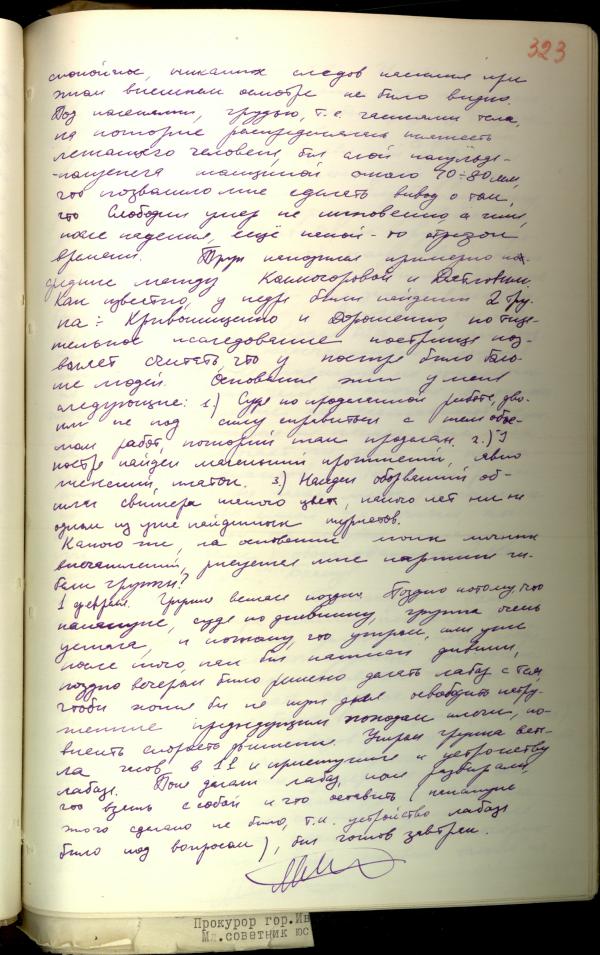 323
спокойное, никаких следов насилия при
этом внешнем осмотре не было видно.
Под коленями, грудью, т.е. частями тела,
на которые распределялась тяжесть
лежащего человека, был слой полульда-
-полуснега толщиной около 70÷80 мм,
что позволило мне сделать вывод о том,
что Слободин умер не мгновенно, а жил,
после падения, ещё какой-то отрезок
времени. Труп находился примерно по-
средине между Колмогоровой и Дятловым.
Как известно, у кедра были найдены 2 тру-
па: Кривонищенко и Дорошенко, но тща-
тельное исследование кострища поз-
воляет считать, что у костра было боль-
ше людей. Основания этому у меня
следующие: 1) Судя по проделанной работе, дво-
им не под силу справиться с тем объё-
мом работ, который там проделан. 2.) У
костра найден маленький прожженный, явно
женский, платок. 3.) Найден оборванный об-
шлаг свитера темного цвета, какого нет ни на
одном из уже найденных туристов.
Какого же, на основании моих личных
впечатлений, рисуется мне картина ги-
бели группы?
1 февраля. Группа встала поздно. Поздно потому, что
накануне, судя по дневнику, группа очень
устала, и потому, что утром, или уже
после того, как был написан дневник,
поздно вечером было решено делать лабаз с тем,
чтобы хотя бы на три дня освободить натру-
женные предыдущим походом плечи, по-
высить скорость движения. Утром группа вста-
ла часов в 11 и приступила к устройству
лабаза. Пока делали лабаз, пока разбирали,
что взять с собой и что оставить (накануне
этого сделано не было, т.к. устройство лабаза
было под вопросом), был готов завтрак.
Прокурор гор.Ив
Мл.советник юс